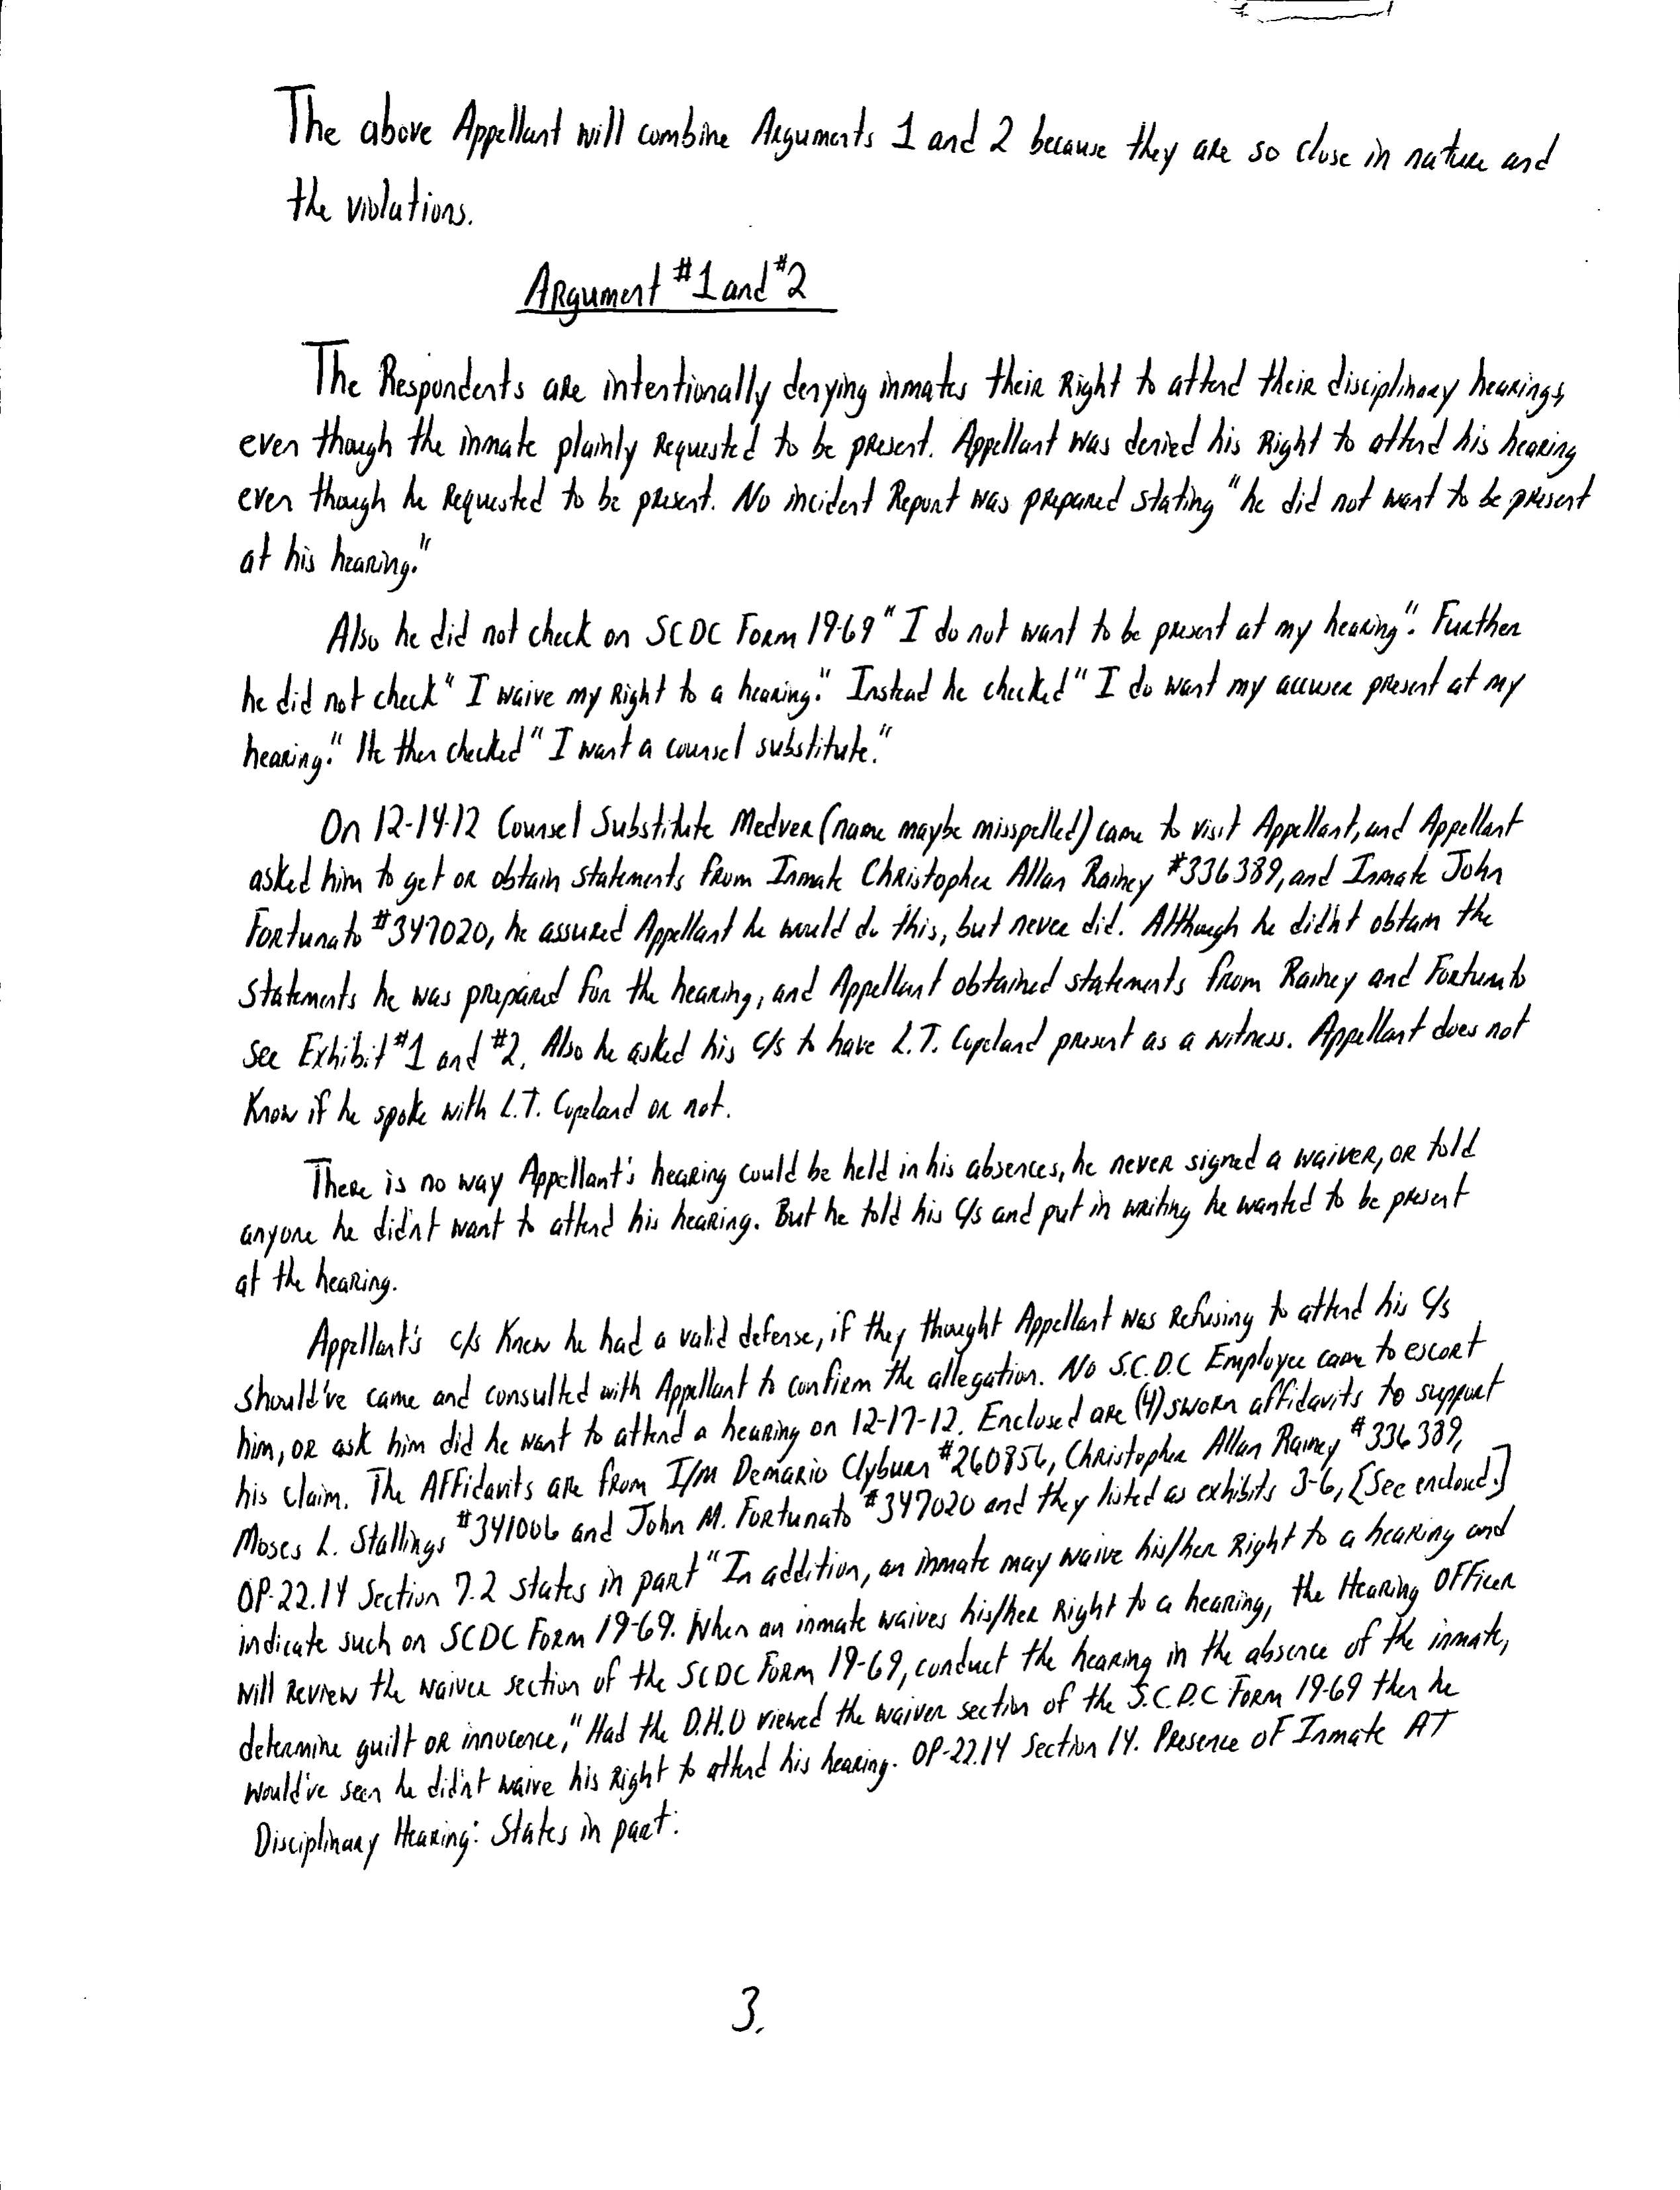 The above Appellant will combine Arguments 1 and 2 because they are so close in nature and
the violations.
Argument #1 and #2
The Respondents are intentionally denying inmates their Right to attend their disciplinary hearings,
even though the inmate plainly Requested to be present. Appellant was denied his Right to attend his hearing
even though he Requested to be present. No incident Report was prepared stating "he did not want to be present
at his hearing."
Also he did not check on SCDC Form 19-69 "I do not want to be present at my hearing". Further
he did not check "I waive my Right to a hearing." Instead he checked "I do want my accuser present at my
hearing." He then checked "I want a counsel substitute."
On 12-14-12 Counsel Substitute Medver (name maybe misspelled) came to visit Appellant, and Appellant
asked him to get or obtain statements from Inmate Christopher Allan Rainey #336389, and Inmate John
Fortunato #347020, he assured Appellant he would do this, but never did. Although he didn't obtain the
statements he was prepared for the hearing, and Appellant obtained statements from Rainey and Fortunato
see Exhibit #1 and #2. Also he asked his c/s to have L.T. Copeland present as a witness. Appellant does not
Know if he spoke with L.T. Copeland or not.
There is no way Appellant's hearing could be held in his absences, he never signed a waiver, or told
anyone he didn't want to attend his hearing. But he told his c/s and put in writing he wanted to be present
at the hearing.
Appellant's c/s Knew he had a valid defense, if they thought Appellant was Refusing to attend his c/s
should've came and consulted with Appellant to confirm the allegation. No S.C.D.C Employee came to escort
him, or ask him did he want to attend a hearing on 12-17-12. Enclosed are (4) sworn affidavits to support
his claim. The Affidavits are from I/M Demario Clyburn #260856, Christopher Allan Rainey #336389,
Moses L. Stallings #341006 and John M. Fortunato #347020 and they listed as exhibits 3-6, [See enclosed.]
OP-22.14 Section 7.2 states in part "In addition, an inmate may waive his/her Right to a hearing and
indicate such on SCDC Form 19-69. When an inmate waives his/her Right to a hearing, the Hearing Officer
will Review the waiver section of the SCDC Form 19-69, conduct the hearing in the absence of the inmate,
determine guilt or innocence," Had the D.H.O viewed the waiver section of the S.C.D.C Form 19-69 then he
would've seen he didn't waive his Right to attend his hearing. OP-22.14 Section 14. Presence of Inmate AT
Disciplinary Hearing: States in part:
3.